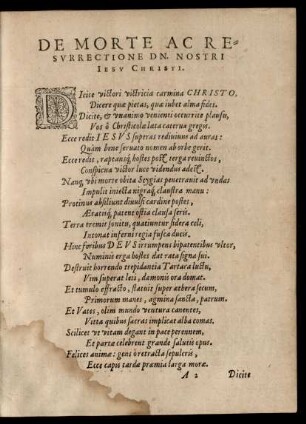 DE MORTE AC RE-
SVRRECTIONE DN. NOSTRI
IESV CHRISTI.
DIcite victori victricia carmina CHRISTO.
Dicere quæ pietas, quæ iubet alma fides.
Dicite, & vnanimo venienti occurrite plausu,
Vos ô Christicolæ læta caterua gregis.
Ecce redit IESVS superas rediuiuus ad auras:
Quàm bene seruato nomen ab orbe gerit.
Ecce redit, raptansq́; hostes post terga reuinctos,
Conspicuā victor luce videndus adest.
Nanq́; vbi morte obita Stygias penetrauit ad vndas
Impulit iniecta nigra claustra manu:
Protinus absiliunt diuulsi cardine postes,
Æratiq́; patent ostia clausa seris.
Terra tremit sonitu, quatiuntur sidera cœli,
Intonat inferni regia fusca ducis.
Hinc foribus DEVS irrumpens bipatentibus vltor,
Numinis erga hostes dat rata signa sui.
Destruit horrendo trepidantia Tartara luctu,
Vim superat lesi, dæmonis ora domat.
Et tumulo effracto, statuit super æthera secum,
Primorum manes, agmina sancta, patrum.
Et Vates, olim mundo ventura canentes,
Vitta quibus sacras implicat alba comas.
Scilicet vt vitam degant in pace perennem,
Et partæ celebrent grande salutis opus.
Felices animæ: gens ô retracta sepulcris,
Ecce capis tarda præmia larga moræ.
A 2 Dicite